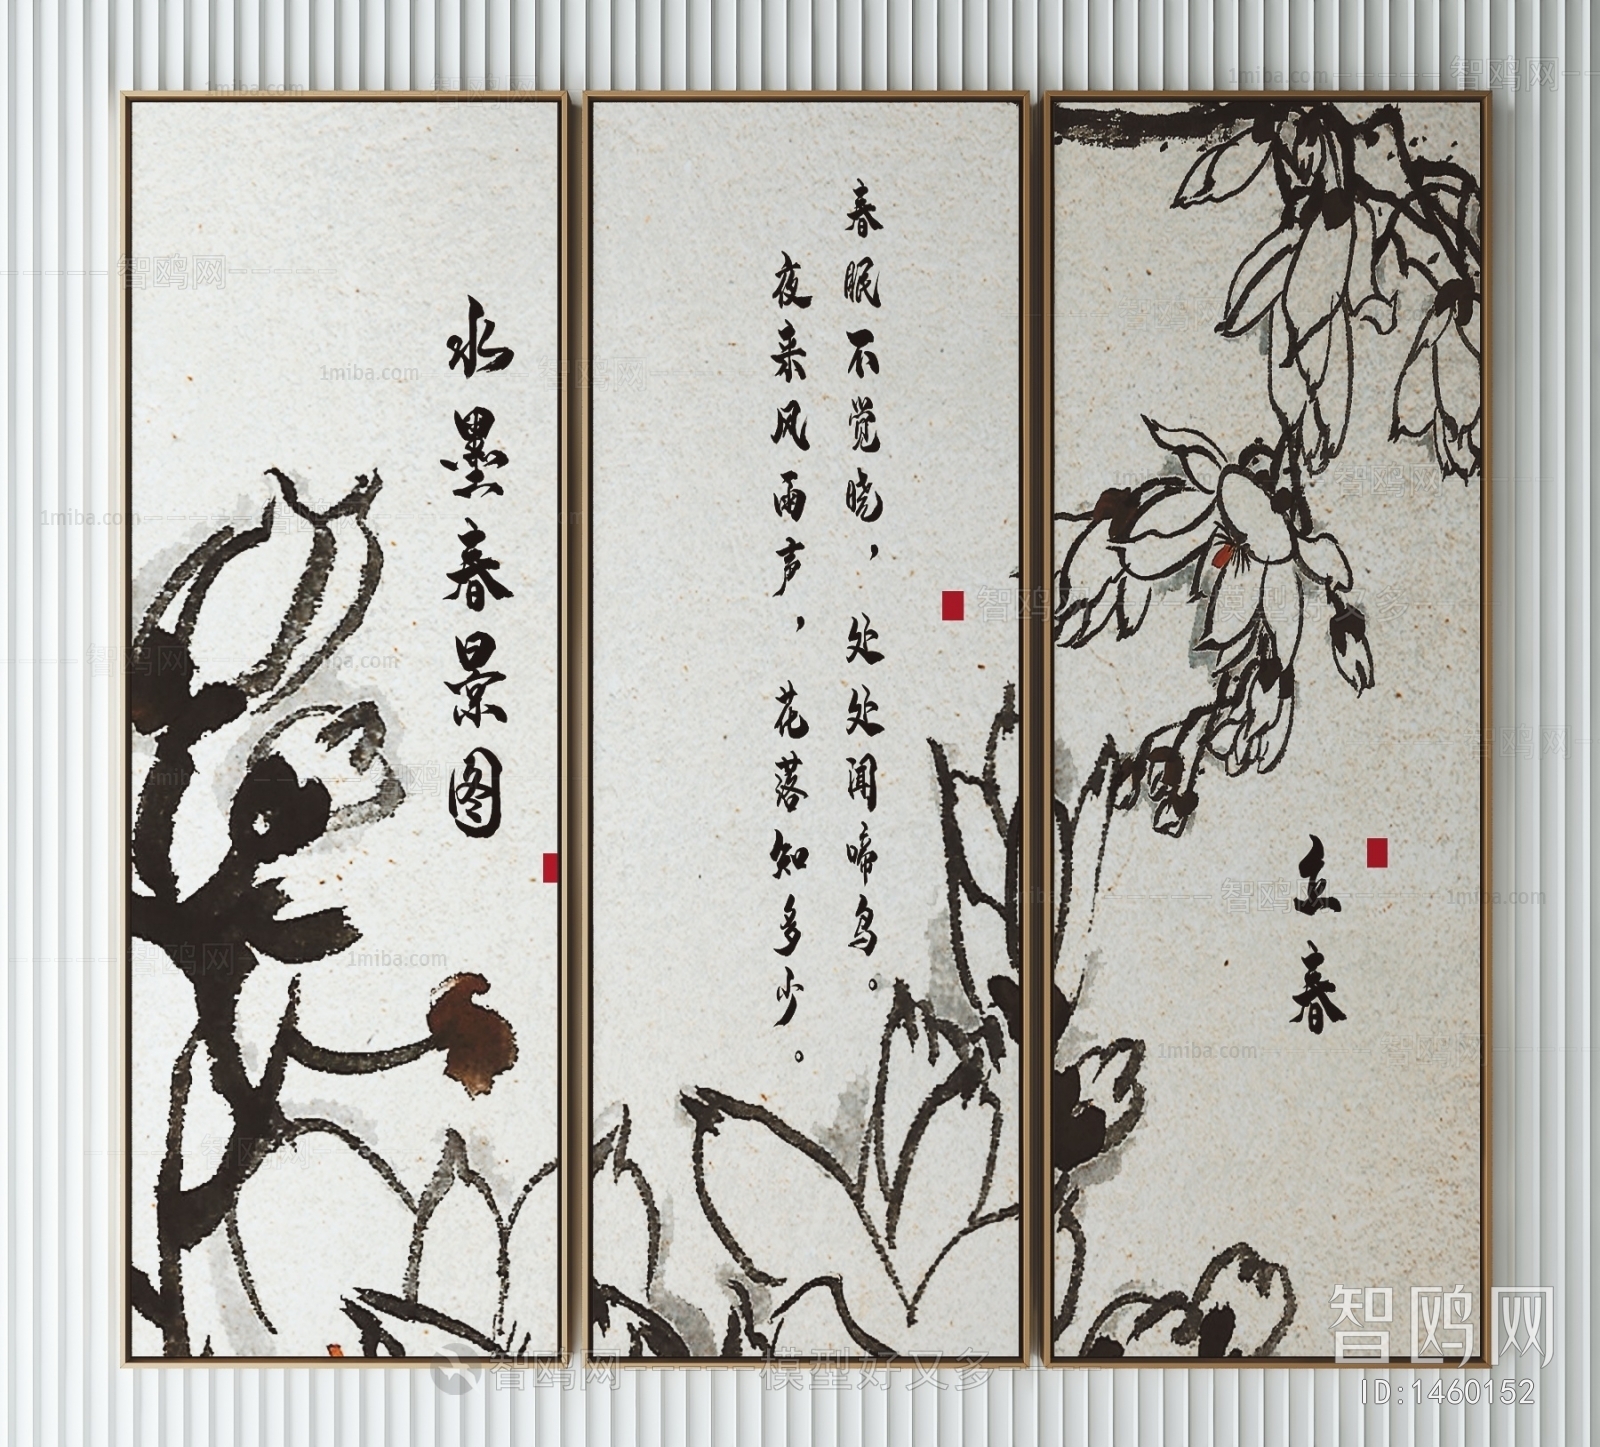 水墨春景图
春眠不觉晓，处处闻啼鸟。
夜来风雨声，花落知多少。
立春
智鸥网
ID:1460152
1miba.com
智鸥网
模型好又多